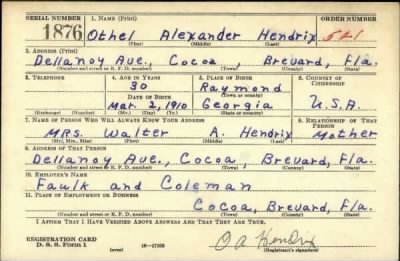 SERIAL NUMBER 1. NAME (Print)
1876 Othel Alexander Hendrix 521
(First) (Middle) (Last)
2. ADDRESS (Print)
Dellanoy Ave., Cocoa, Brevard, Fla.
(Number and street or R. F. D. number) (Town) (County) (State)
3. TELEPHONE 4. AGE IN YEARS 5. PLACE OF BIRTH 6. COUNTRY OF CITIZENSHIP
30 Raymond
(Town or county)
DATE OF BIRTH
Mar. 2, 1910 Georgia U.S.A.
(Exchange) (No.) (Mo.) (Day) (Yr.) (State or country)
7. NAME OF PERSON WHO WILL ALWAYS KNOW YOUR ADDRESS 8. RELATIONSHIP OF THAT PERSON
MRS. Walter A. Hendrix Mother
(Mr., Mrs., Miss) (First) (Middle) (Last)
9. ADDRESS OF THAT PERSON
Dellanoy Ave., Cocoa, Brevard, Fla.
(Number and street or R. F. D. number) (Town) (County) (State)
10. EMPLOYER'S NAME
Faulk and Coleman
11. PLACE OF EMPLOYMENT OR BUSINESS
Cocoa, Brevard, Fla.
(Number and street or R. F. D. number) (Town) (County) (State)
I AFFIRM THAT I HAVE VERIFIED ABOVE ANSWERS AND THAT THEY ARE TRUE.
REGISTRATION CARD
D. S. S. Form 1 (over) O A Hendrix
(Registrant's signature)